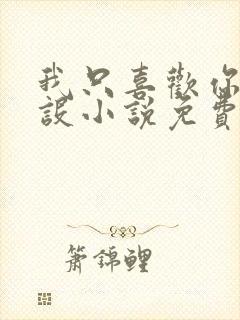 我只喜歡你
設小說免費
簫錦鯉